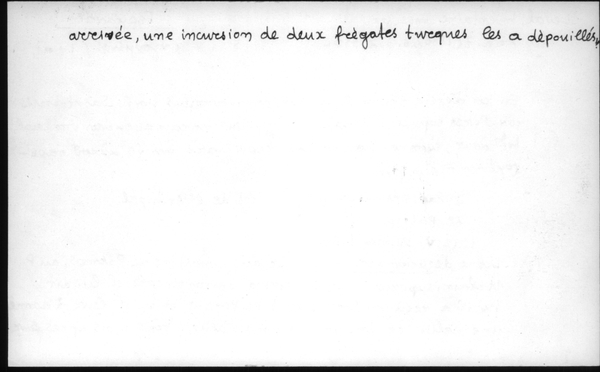 arrivée, une incursion de deux frègates turques les a dépouillés,